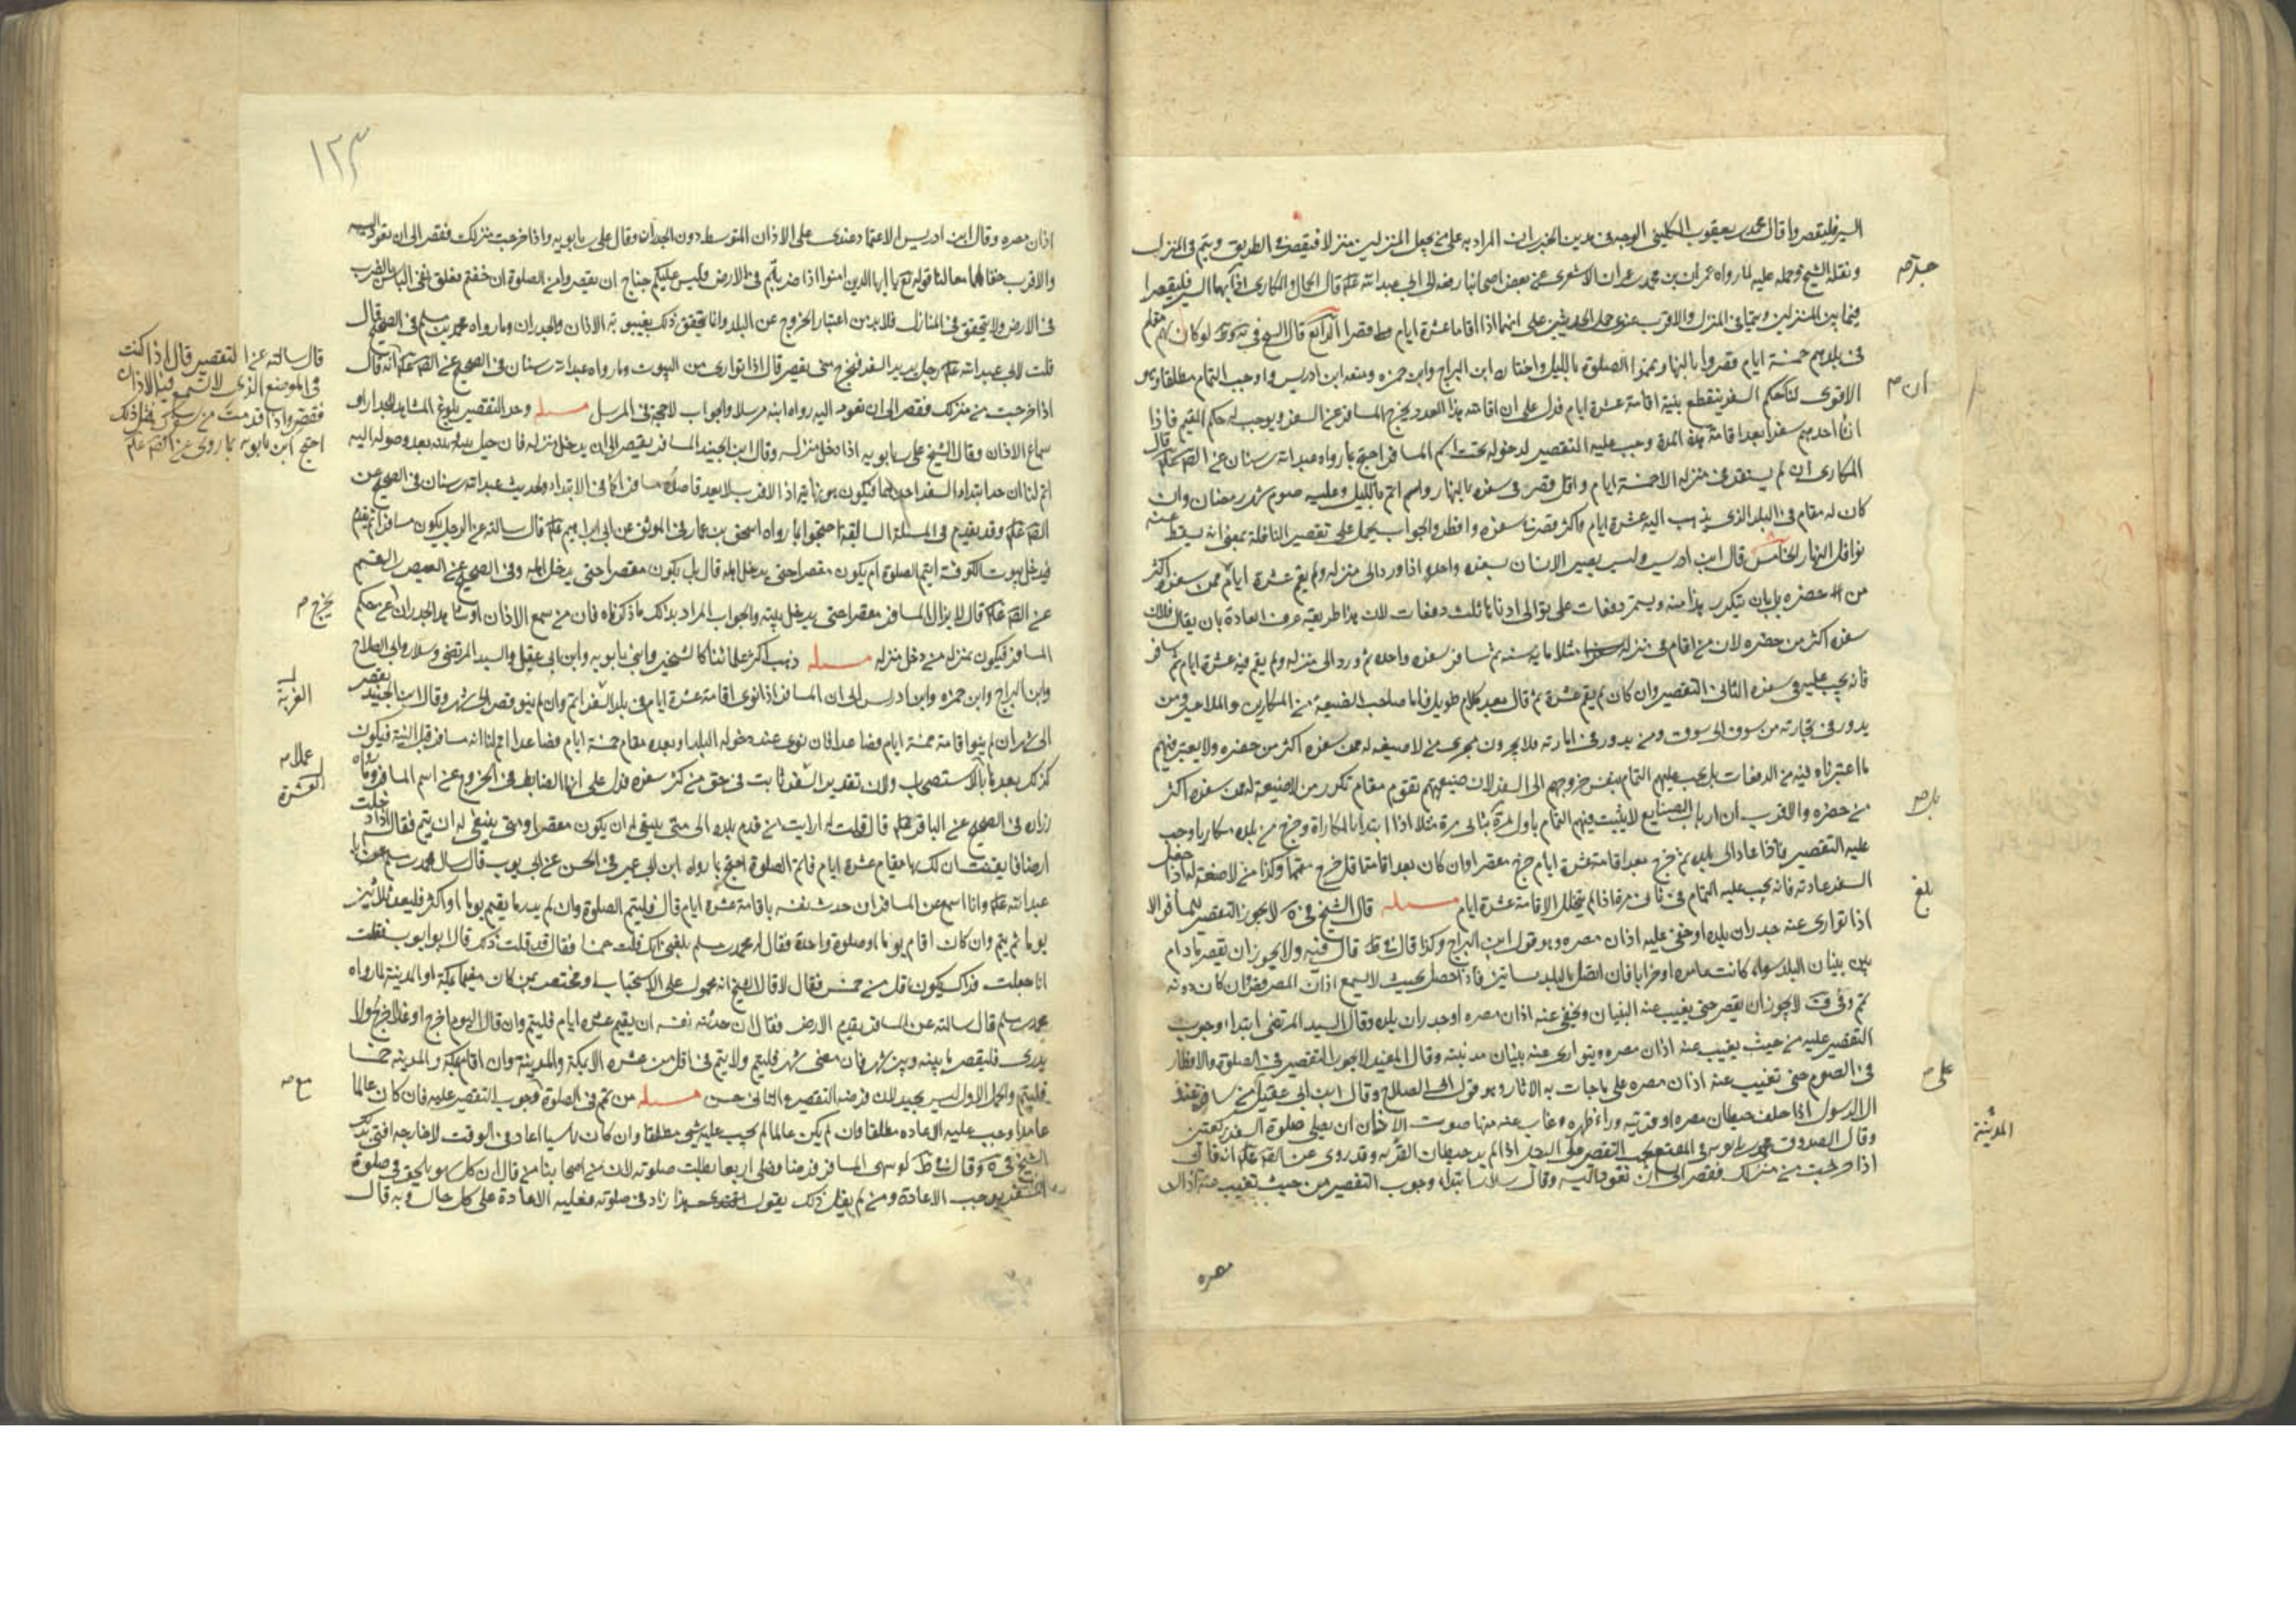 السير فليقصر وقال محمد بن يعقوب الكليني الوجه في هذين الخبرين ان المراد به على من يجعل المنزلين منزلا فيقصر في الطريق ويتم في المنزل
ونقله الشيخ وحمله عليه لما رواه عمران بن محمد بن عمران الاشعري عن بعض اصحابنا رفعه الى ابي عبد الله علم قال الجمال والمكاري اذا جد بهما السير فليقصرا
فيما بين المنزلين ويتما في المنزل والاقرب عندي حمل الحديثين على انهما اذا اقاما عشرة ايام قصرا الرابع قال الشيخ في لو كان لهم مقام
في بلدهم خمسة ايام قصروا بالنهار وتمموا الصلوة بالليل واختاره ابن البراج وابن حمزه ومنعه ابن ادريس واوجب التمام مطلقا وهو
الاقوى لنا حكم السفر ينقطع بنية اقامة عشرة ايام فدل على ان اقامته هذا العدد يخرج المسافر عن السفر ويوجب له حكم المقيم فاذا
انشأ احدهم سفرا بعد اقامة هذه المدة وجب عليه التقصير لدخوله تحت اسم المسافر احتج بما رواه عبد الله بن سنان عن الصم علم قال
المكاري ان لم يستقر في منزله الا خمسة ايام واقل قصر في سفره بالنهار واتم بالليل وعليه صوم شهر رمضان وان
كان له مقام في البلد الذي يذهب اليه عشرة ايام واكثر قصر في سفره وافطر والجواب يحمل على تقصير النافلة بمعنى انه يسقط عنه
نوافل النهار الخامس قال ابن ادريس وليس يصير الانسان بسفره واحده اذا ورد الى منزله ولم يقم عشرة ايام ممن سفره اكثر
من حضره بل بان يتكرر هذا منه ويستمر دفعات على توالي ادناها ثلث دفعات لان هذا طريقته عرف العادة بان يقال فلان
سفره اكثر من حضره لان من اقام في منزله مثلا مايه سنه ثم سافر سفره واحده ثم ورد الى منزله ولم يقم فيه عشرة ايام ثم سافر
فانه يجب عليه في سفره الثاني التقصير وان كان لم يقم عشرة ثم قال بعد كلام طويل فاما صاحب الصنعة من المكارين والملاحين ومن
يدور في تجارته من سوق الى سوق ومن يدور في امارته فلا يجرون مجرى من لا صنعة له ممن سفره اكثر من حضره ولا يعتبر فيهم
ما اعتبرناه فيه من الدفعات بل يجب عليهم التمام بنفس خروجهم الى السفر لان صنعتهم تقوم مقام تكرر من لا صنعة له ممن سفره اكثر
من حضره والاقرب ان ارباب الصنايع لا يثبت فيهم التمام باول مرة بل بثاني مرة مثلا اذا ابتدا بالمكاراة وخرج من بلده مكاريا وجب
عليه التقصير فاذا عاد الى بلده ثم خرج بعد اقامة عشرة ايام خرج مقصرا وان كان بعد اقامة اقل خرج متمما وكذا من لا صنعة له اذا جعل
السفر عادته فانه يجب عليه التمام في ثاني مرة اذا لم يتخلل الاقامة عشرة ايام مسله قال الشيخ في لا يجوز التقصير للمسافر الا
اذا توارى عنه جدران بلده او خفي عليه اذان مصره وهو قول ابن البراج وكذا قال في ط قال فيه ولا يجوز ان يقصر ما دام
بين بنيان البلد سواء كانت عامرة او خرابا فان اتصل بالبلد بساتين فاذا حصل بحيث لا يسمع اذان المصر قصر فان كان دونه
تمم وفي لا يجوز ان يقصر حتى يغيب عنه البنيان ويخفى عنه اذان مصره او جدران بلده وقال السيد المرتضى ابتداء وجوب
التقصير عليه من حيث يغيب عنه اذان مصره ويتوارى عنه بنيان مدينته وقال المفيد لا يجوز التقصير في الصلوة والافطار
في الصوم حتى تغيب عنه اذان مصره على ما جات به الاثار وهو قول ابي الصلاح وقال ابن ابي عقيل من سافر عند
ال الرسول اذا خلف حيطان مصره او قريته وراء ظهره وغاب عنه منها صوت الاذان ان يصلي صلوة السفر ركعتين
وقال الصدوق محمد بن بابويه في المقنع يجب التقصير على الرجل اذا لم ير حيطان القريه وقد روي عن الصم علم انه قال
اذا خرجت من منزلك فقصر الى ان تعود اليه وقال سلار ابتداء وجوب التقصير من حيث تغيب عنه اذان
مصره
المدينة
بلغ
١٢٣
اذان مصره وقال ابن ادريس الاعتماد عندي على الاذان المتوسط دون الجدران وقال علي بن بابويه واذا خرجت من منزلك فقصر الى ان تعود اليه
والاقرب خفاؤهما معا لنا قوله تع يا ايها الذين امنوا اذا ضربتم في الارض فليس عليكم جناح ان تقصروا من الصلوة ان خفتم فعلق نفي الباس بالضرب
في الارض ولا يتحقق في المنازل فلا بد من اعتبار الخروج عن البلد وانما يتحقق ذلك بغيبوبة الاذان والجدران وما رواه محمد بن مسلم في الصحيح قال
قلت لابي عبد الله علم رجل يريد السفر فيخرج متى يقصر قال اذا توارى من البيوت وما رواه عبد الله بن سنان في الصحيح عن الصم علم انه قال
اذا خرجت من منزلك فقصر الى ان تعود اليه رواه ابنه مرسلا والجواب لا حجة في المرسل مسله وحد التقصير بلوغ المشاهد للجدار او
سماع الاذان وقال الشيخ علي بن بابويه اذا دخل منزله وقال ابن الجنيد المسافر يقصر الى ان يدخل منزله فان حيل بينه وبينه بعد وصوله اليه
اتم لنا ان حد ابتداء السفر احدهما فيكون هو نهايته اذ الاقرب لا يعد قاصده مسافرا كما في الابتداء ولحديث عبد الله بن سنان في الصحيح عن
الصم علم وقد تقدم في المسئلة السابقة احتجوا بما رواه اسحق بن عمار في الموثق عن ابي ابراهيم علم قال سالته عن الرجل يكون مسافرا ثم يقدم
فيدخل بيوت الكوفة ايتم الصلوة ام يكون مقصرا حتى يدخل اهله قال بل يكون مقصرا حتى يدخل اهله وفي الصحيح عن العيص بن القسم
عن الصم علم قال لا يزال المسافر مقصرا حتى يدخل بيته والجواب المراد بذلك ما ذكرناه فان من سمع الاذان او شاهد الجدران عن حكم
المسافر فيكون بمنزلة من دخل منزله مسله ذهب اكثر علمائنا كالشيخين وابني بابويه وابن ابي عقيل والسيد المرتضى وسلار وابي الصلاح
وابن البراج وابن حمزه وابن ادريس الى ان المسافر اذا نوى اقامة عشرة ايام في بلد السفر اتم وان لم ينو قصر الى شهر وقال ابن الجنيد يقصر
الى شهر ان لم ينو اقامة خمسة ايام فصاعدا فان نوى عند دخوله البلد او بعده مقام خمسة ايام فصاعدا اتم لنا انه مسافر قبل النية فيكون
كذلك بعدها بالاستصحاب ولان تقدير السفر ثابت في حق من كثر سفره فدل على انها الضابط في الخروج عن اسم المسافر وما رواه
زراره في الصحيح عن الباقر علم قال قلت له ارايت من قدم بلده الى متى ينبغي له ان يكون مقصرا ومتى ينبغي له ان يتم فقال اذا دخلت
ارضا فايقنت ان لك بها مقام عشرة ايام فاتم الصلوة احتج بما رواه ابن ابي عمير في الحسن عن ابي ايوب قال سال محمد بن مسلم ابا
عبد الله علم وانا اسمع عن المسافر ان حدث نفسه باقامة عشرة ايام قال فليتم الصلوة وان لم يدر ما يقيم يوما او اكثر فليعد ثلثين
يوما ثم يتم وان كان اقام يوما او صلوة واحدة فقال له محمد بن مسلم بلغني انك قلت خمسا فقال قد قلت ذلك قال ابو ايوب فقلت
انا جعلت فداك يكون اقل من خمس فقال لا قال الشيخ انه محمول على الاستحباب او مختص بمن كان مقيما بمكة او المدينة لما رواه
محمد بن مسلم قال سالته عن المسافر يقدم الارض فقال ان حدثته نفسه ان يقيم عشرة ايام فليتم وان قال اليوم اخرج او غدا اخرج ولا
يدري فليقصر ما بينه وبين شهر فان مضى شهر فليتم ولا يتم في اقل من عشرة الا بمكة والمدينة وان اقام بمكة والمدينة خمسا
فليتم والحمل الاول ليس بجيد لان فرضه التقصير والثاني حسن مسله من تمم في الصلوة وجوب التقصير عليه فان كان عالما
عامدا وجب عليه الاعاده مطلقا وان لم يكن عالما لم يجب عليه شي مطلقا وان كان ناسيا اعاد في الوقت لا خارجه افتى بذلك
الشيخ في وقال في ط لو سهى المسافر فصلى اربعا بطلت صلوته لان من اصحابنا من قال ان كل سهو يلحق في صلوة
السفر يوجب الاعادة ومن لم يقل ذلك يقول هذا زاد في صلوته فعليه الاعادة على كل حال وبه قال
قال سالته عن التقصير قال اذا كنت
في الموضع الذي لا تسمع فيه الاذان
فقصر واذا قدمت من سفرك فمثل ذلك
احتج ابن بابويه بما روي عن الصم علم
يخرج